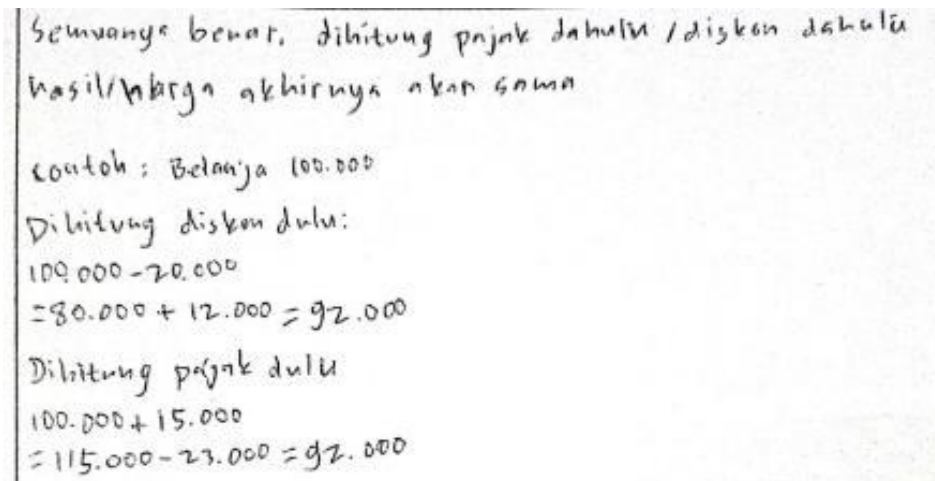 Semuanya benar, dihitung pajak dahulu / diskon dahulu
hasil/harga akhirnya akan sama
contoh : Belanja 100.000
Dihitung diskon dulu:
100.000 - 20.000
= 80.000 + 12.000 = 92.000
Dihitung pajak dulu
100.000 + 15.000
= 115.000 - 23.000 = 92.000